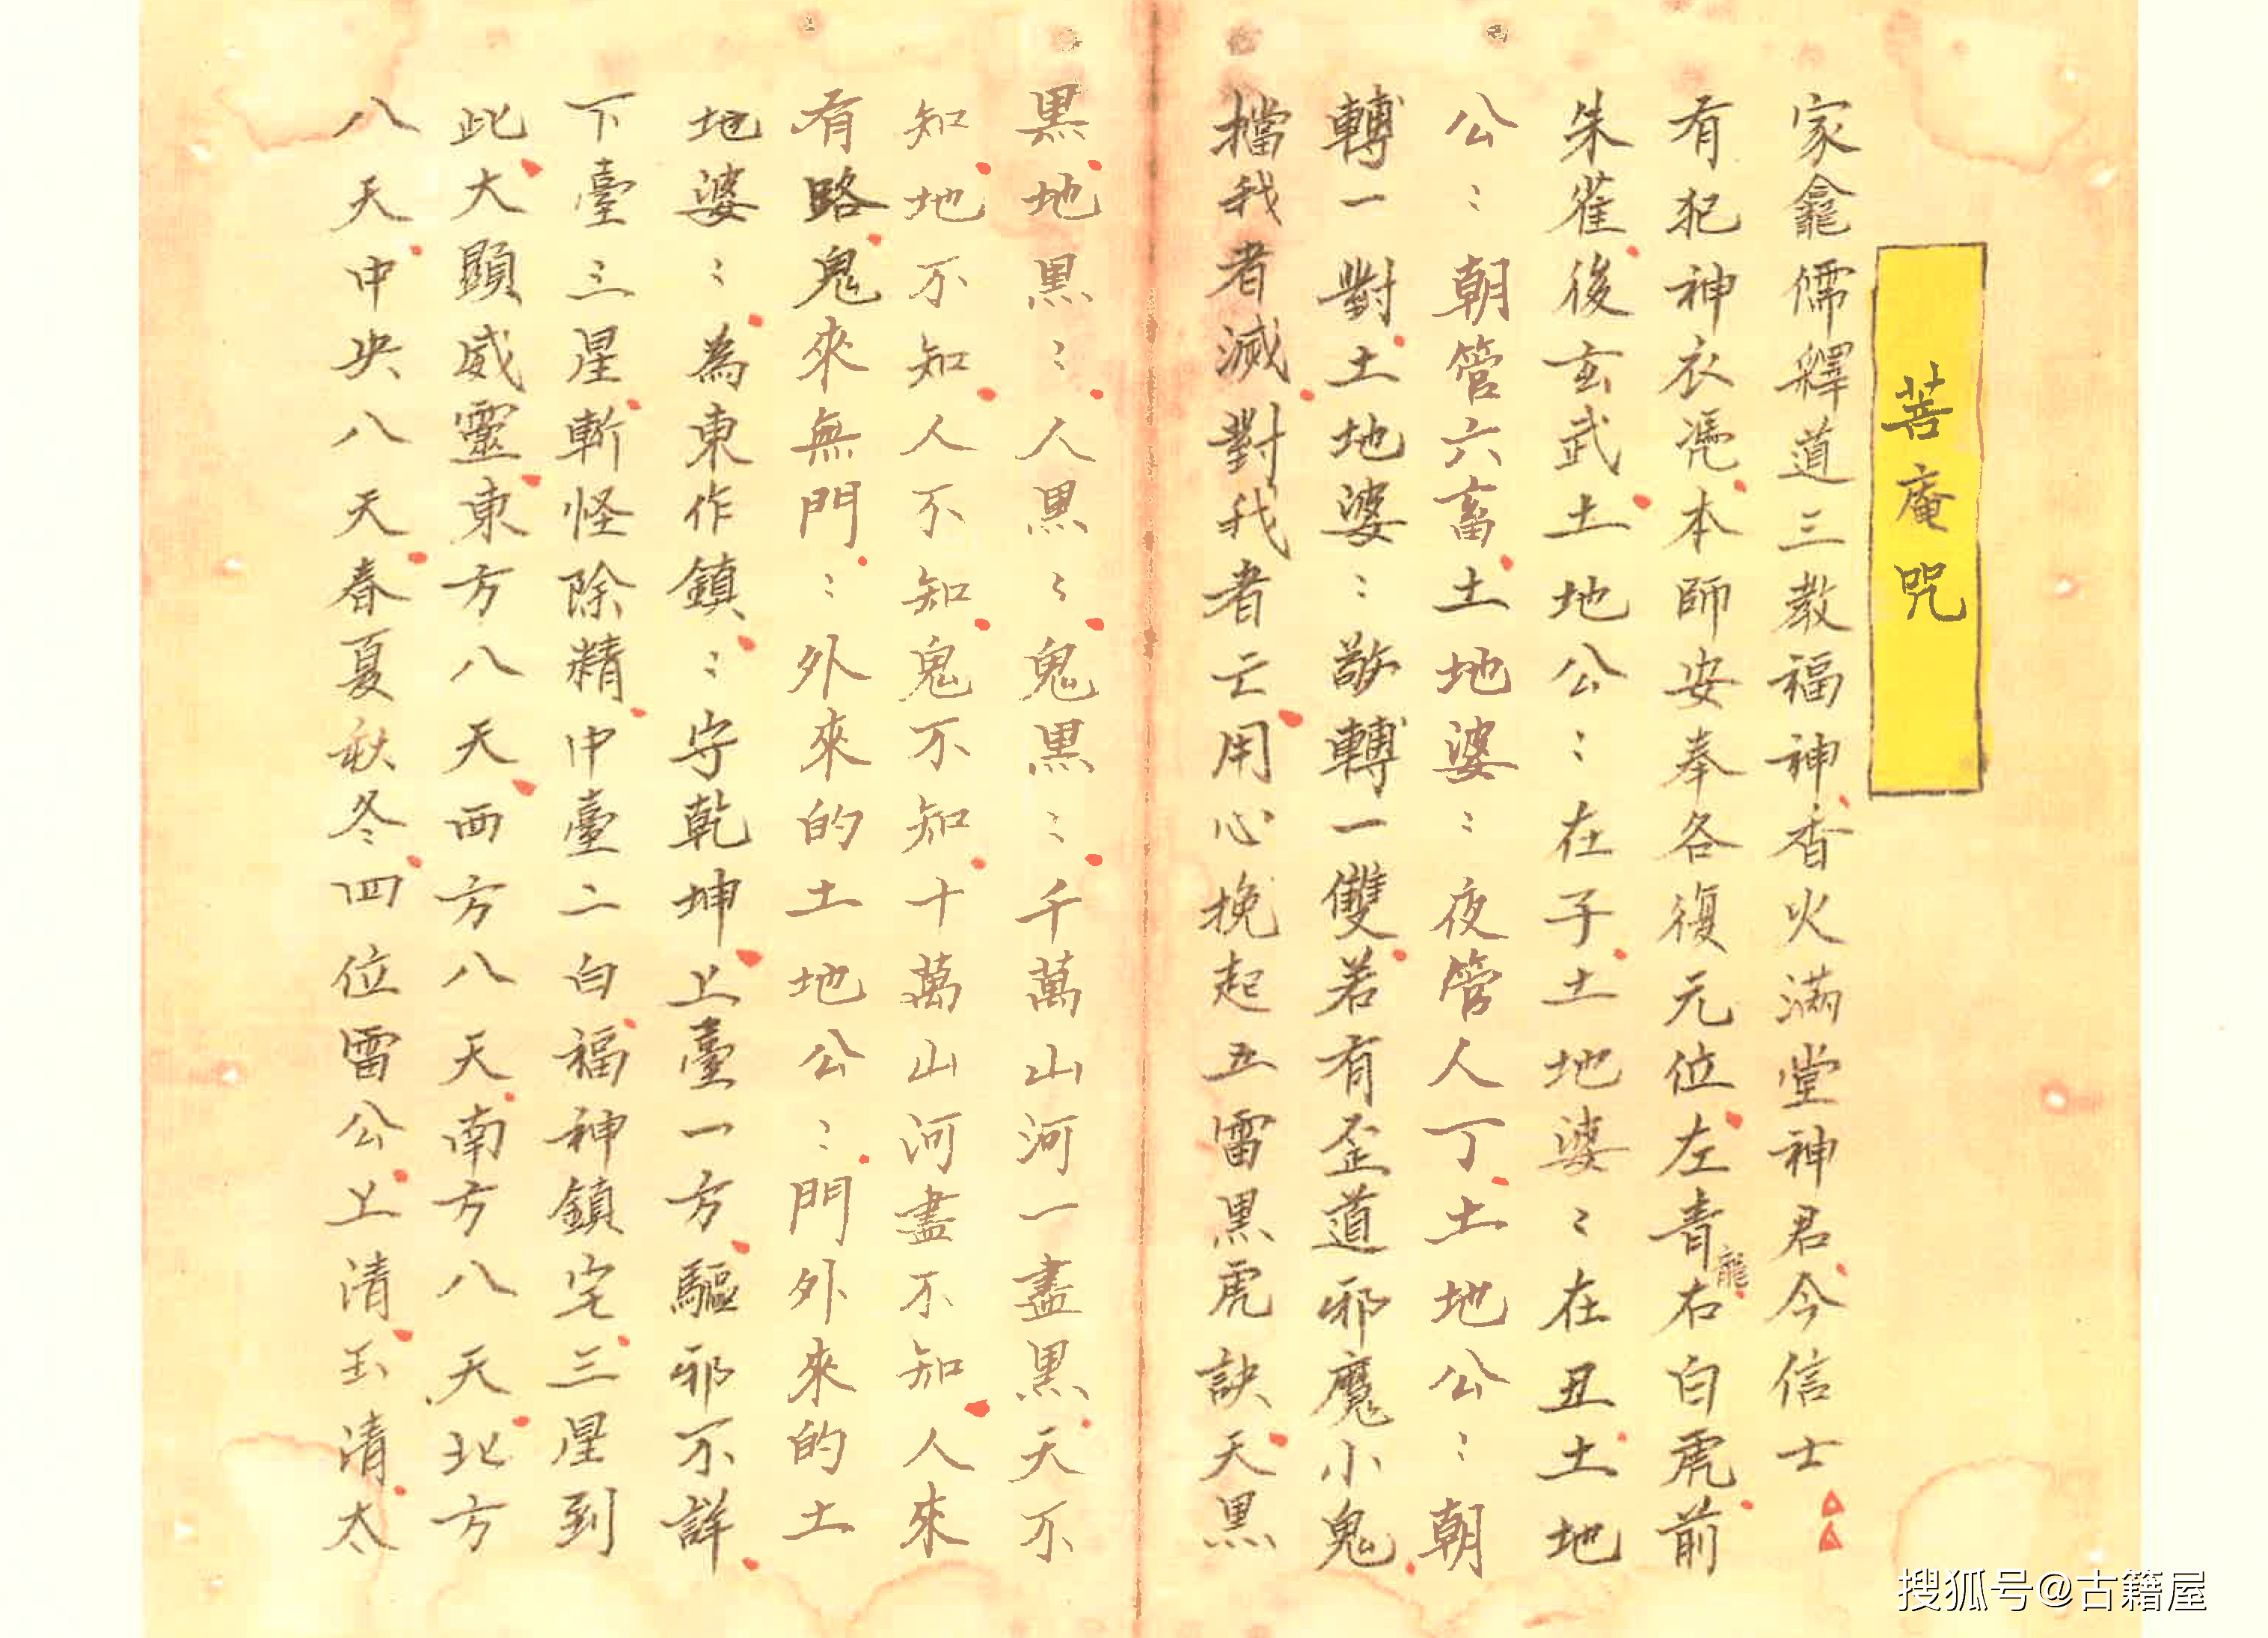 菩庵咒
家龕儒釋道三教福神香火滿堂神君今信士
有犯神衣凴本師安奉各復元位左青龍右白虎前
朱雀後玄武土地公〻在子土地婆〻在丑土地
公〻朝管六畜土地婆〻夜管人丁土地公〻朝
轉一對土地婆〻敨轉一雙若有歪道邪魔小鬼
擋我者滅對我者亡用心挽起五雷黑虎訣天黑
黑地黑〻人黑〻鬼黑〻千萬山河一盡黑天不
知地不知人不知鬼不知十萬山河盡不知人來
有路鬼來無門〻外來的土地公〻門外來的土
地婆〻為東作鎮〻守乾坤上臺一方驅邪不詳
下臺三星斬怪除精中臺二白福神鎮宅三星到
此大顯威靈東方八天西方八天南方八天北方
八天中央八天春夏秋冬四位雷公上清玉清太
搜狐号@古籍屋